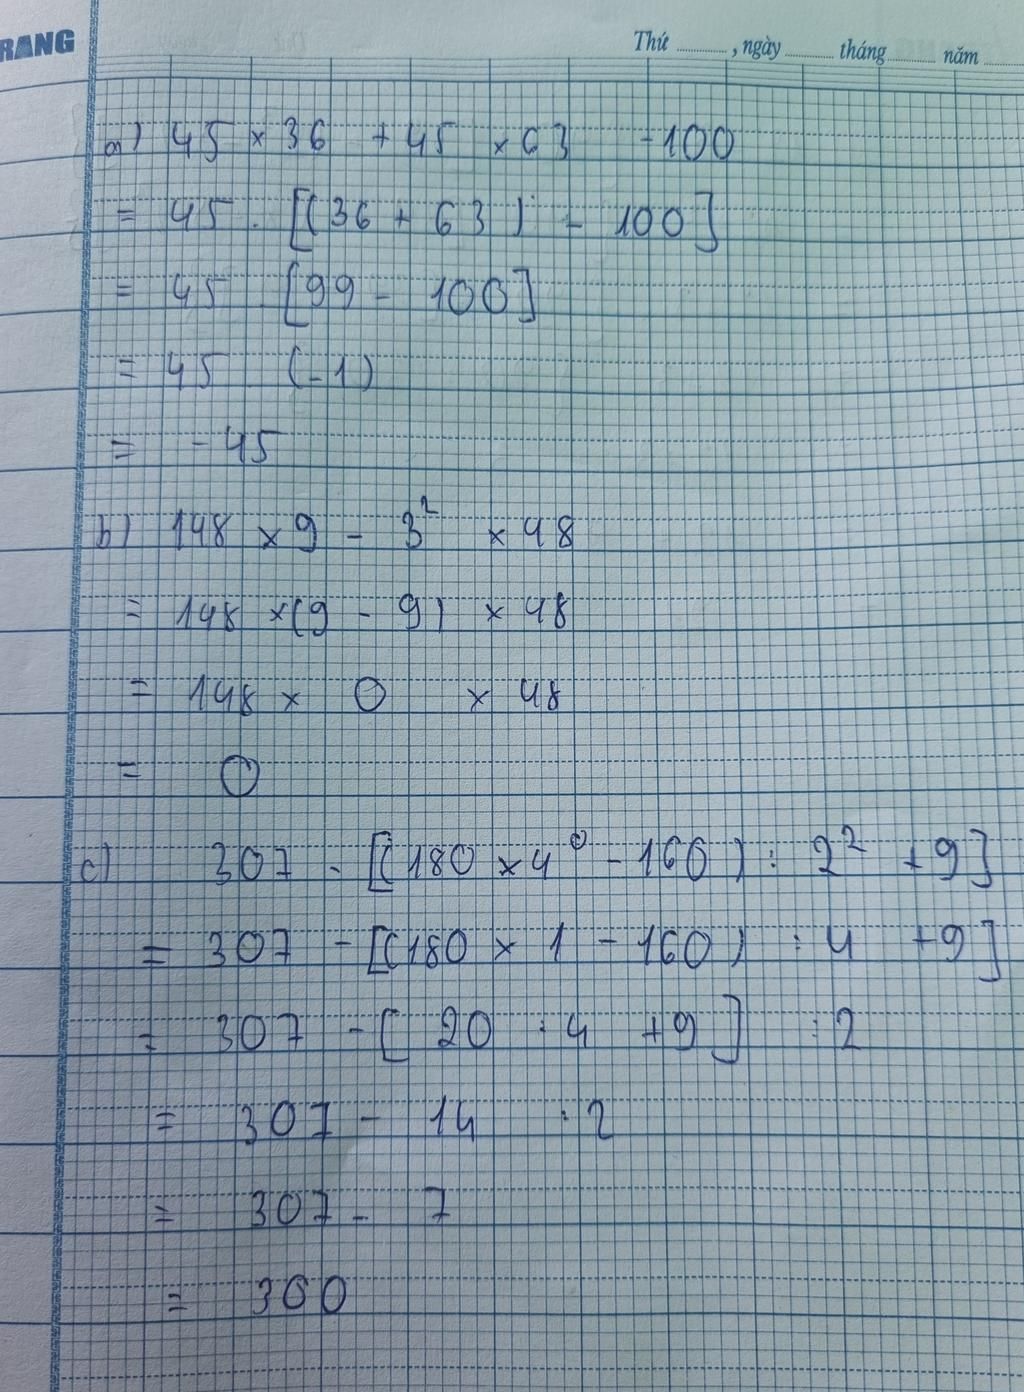 RANG
Thứ ........., ngày ......... tháng ......... năm .........
a) 45 × 36 + 45 × 63 - 100
= 45 . [(36 + 63) - 100]
= 45 . [99 - 100]
= 45 (-1)
= -45
b) 148 × 9 - 3² × 48
= 148 × (9 - 9) × 48
= 148 × 0 × 48
= 0
c) 307 - [(180 × 4⁰ - 160) : 2² + 9]
= 307 - [(180 × 1 - 160) : 4 + 9]
= 307 - [20 : 4 + 9] : 2
= 307 - 14 : 2
= 307 - 7
= 300